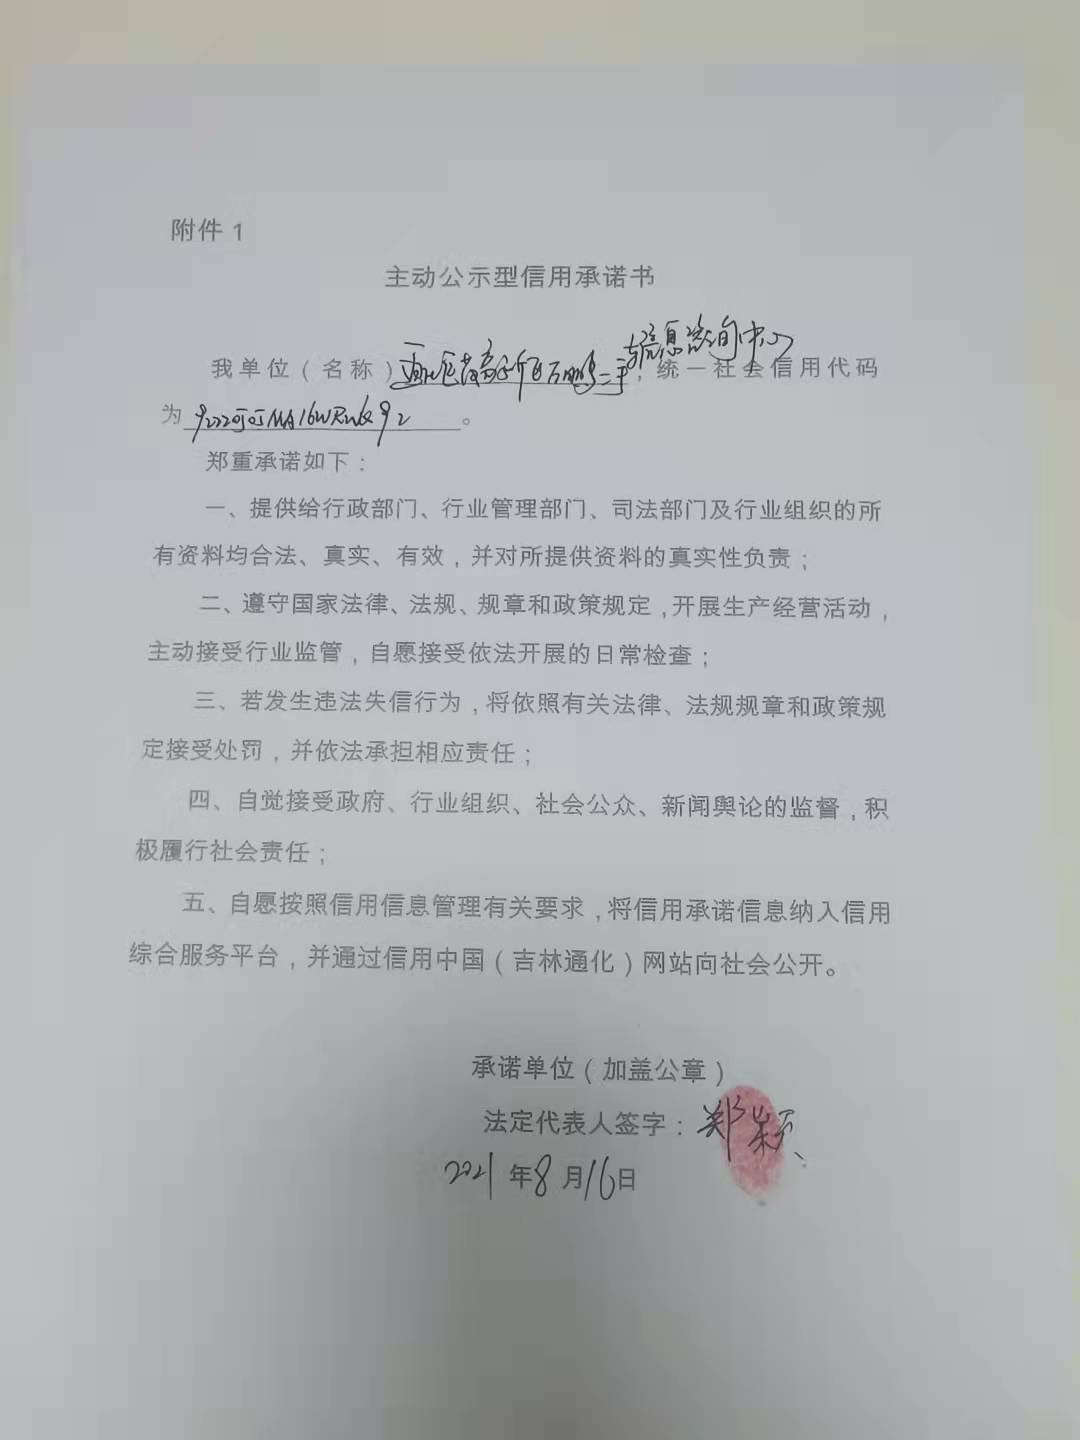 附件1
主动公示型信用承诺书
信息咨询中心
我单位（名称），统一社会信用代码
为。
郑重承诺如下：
一、提供给行政部门、行业管理部门、司法部门及行业组织的所
有资料均合法、真实、有效，并对所提供资料的真实性负责；
二、遵守国家法律、法规、规章和政策规定，开展生产经营活动，
主动接受行业监管，自愿接受依法开展的日常检查；
三、若发生违法失信行为，将依照有关法律、法规规章和政策规
定接受处罚，并依法承担相应责任；
四、自觉接受政府、行业组织、社会公众、新闻舆论的监督，积
极履行社会责任；
五、自愿按照信用信息管理有关要求，将信用承诺信息纳入信用
综合服务平台，并通过信用中国（吉林通化）网站向社会公开。
承诺单位（加盖公章）
法定代表人签字：郑颖
2021年8月16日